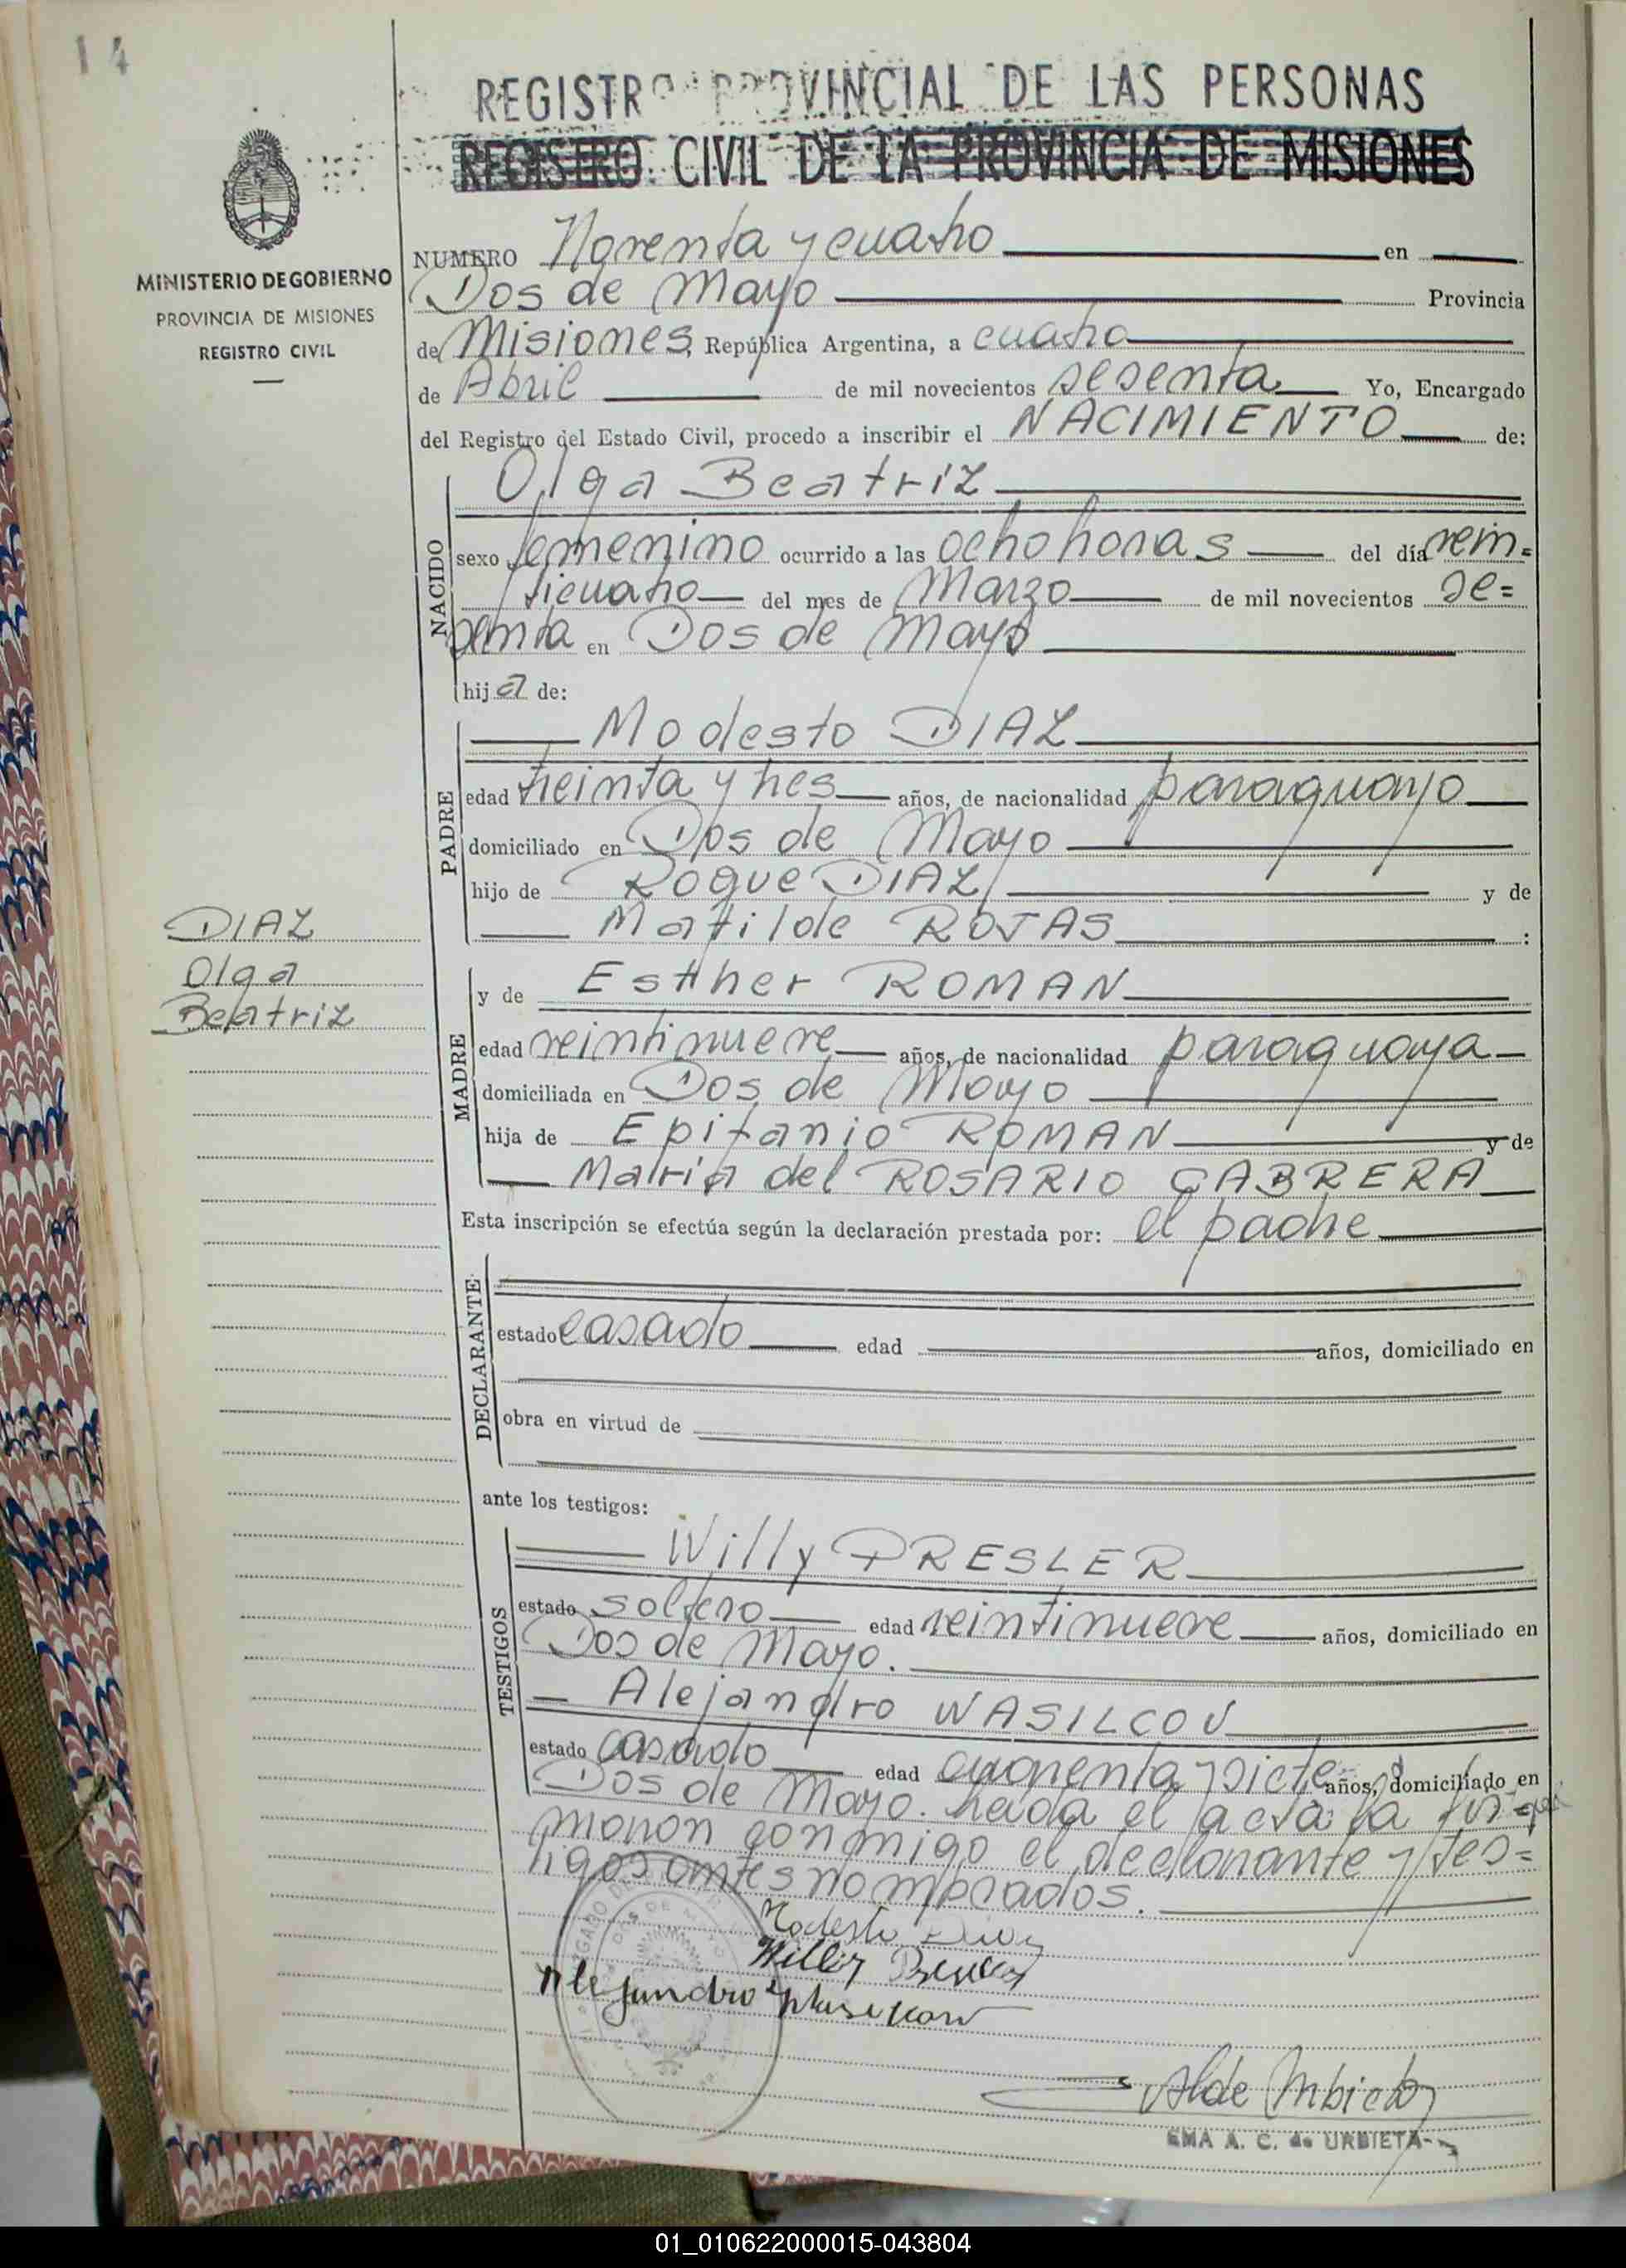 14
REGISTRO PROVINCIAL DE LAS PERSONAS
REGISTRO CIVIL DE LA PROVINCIA DE MISIONES
MINISTERIO DE GOBIERNO
PROVINCIA DE MISIONES
REGISTRO CIVIL
NUMERO Noventa y cuatro en
Dos de Mayo Provincia
de Misiones, República Argentina, a cuatro
de Abril de mil novecientos sesenta Yo, Encargado
del Registro del Estado Civil, procedo a inscribir el NACIMIENTO de:
Olga Beatriz
NACIDO
sexo femenino ocurrido a las ocho horas del día vein=
ticuatro del mes de Marzo de mil novecientos se=
senta en Dos de Mayo
hija de:
Modesto DIAZ
PADRE
edad treinta y tres años, de nacionalidad paraguayo
domiciliado en Dos de Mayo
hijo de Roque DIAZ y de
Matilde ROJAS :
DIAZ
Olga
Beatriz
y de Esther ROMAN
MADRE
edad veintinueve años, de nacionalidad paraguaya
domiciliada en Dos de Mayo
hija de Epifanio ROMAN y de
María del ROSARIO CABRERA
Esta inscripción se efectúa según la declaración prestada por: el padre
DECLARANTE
estado casado edad años, domiciliado en
obra en virtud de
ante los testigos:
Willy PRESLER
TESTIGOS
estado soltero edad veintinueve años, domiciliado en
Dos de Mayo.
Alejandro WASILCOV
estado casado edad cuarenta y siete años, domiciliado en
Dos de Mayo. Leída el acta la fir=
maron conmigo el declarante y tes=
tigos antes nombrados.
Modesto Diaz
Willy Presler
Alejandro
EMA A. C. de URBIETA
01_010622000015-043804